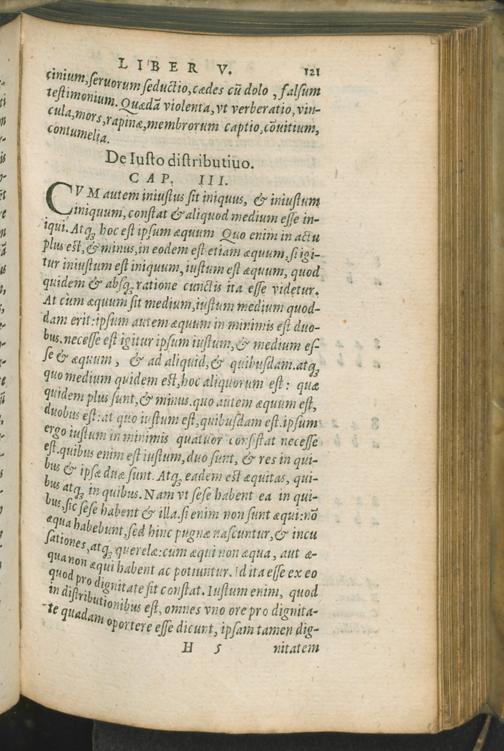 LIBER V. 121
cinium, seruorum seductio, cædes cũ dolo, falsum
testimonium. Quædã violenta, vt verberatio, vin-
cula, mors, rapinæ, membrorum captio, cõuitium,
contumelia.
De Iusto distributiuo.
CAP. III.
CVM autem iniustus sit iniquus, & iniustum
iniquum, constat & aliquod medium esse in-
iqui. Atq; hoc est ipsum æquum Quo enim in actu
plus est, & minus, in eodem est etiam æquum, si igi-
tur iniustum est iniquum, iustum est æquum, quod
quidem & absq; ratione cunctis ita esse videtur.
At cum æquum sit medium, iustum medium quod-
dam erit: ipsum autem æquum in minimis est duo-
bus. necesse est igitur ipsum iustum, & medium es-
se & æquum, & ad aliquid, & quibusdam. atq;
quo medium quidem est, hoc aliquorum est: quæ
quidem plus sunt, & minus. quo autem æquum est,
duobus est: at quo iustum est, quibusdam est. ipsum
ergo iustum in minimis quatuor consistat necesse
est. quibus enim est iustum, duo sunt, & res in qui-
bus & ipsæ duæ sunt. Atq; eadem est æquitas, qui-
bus atq; in quibus. Nam vt sese habent ea in qui-
bus, sic sese habent & illa. si enim non sunt æqui: nõ
æqua habebunt, sed hinc pugnæ nascuntur, & incu
sationes, atq; querelæ: cum æqui non æqua, aut æ-
qua non æqui habent ac potiuntur. Id ita esse ex eo
quod pro dignitate sit constat. Iustum enim, quod
in distributionibus est, omnes vno ore pro dignita-
te quadam oportere esse dicunt, ipsam tamen dig-
H 5 nitatem